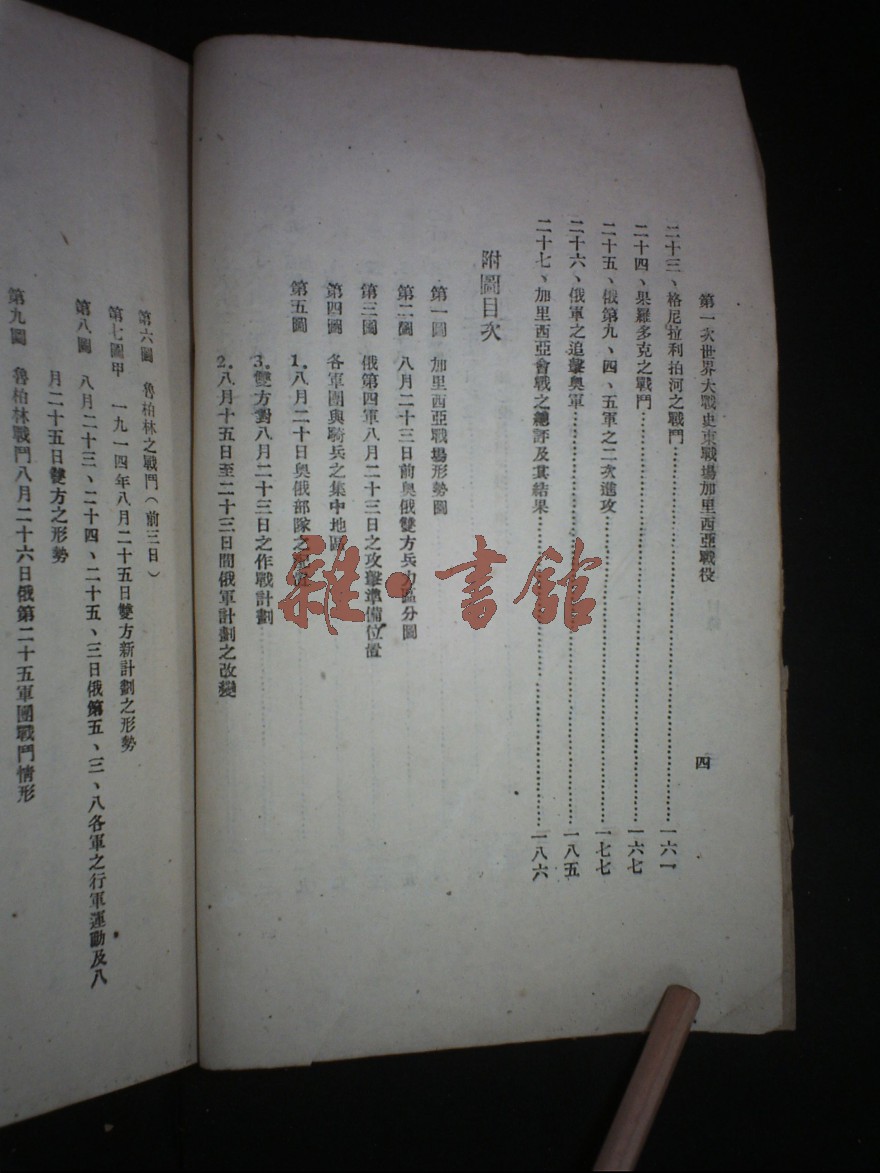 第一次世界大戰史東戰場加里西亞戰役
四
二十三、格尼拉利拍河之戰鬥……一六一
二十四、果羅多克之戰鬥……一六七
二十五、俄第九、四、五軍之二次進攻……一七七
二十六、俄軍之追擊奧軍……一八五
二十七、加里西亞會戰之總評及其結果……一八六
附圖目次
第一圖 加里西亞戰場形勢圖
第二圖 八月二十三日前奧俄雙方兵力區分圖
第三圖 俄第四軍八月二十三日之攻擊準備位置
第四圖 各軍團與騎兵之集中地區
第五圖 1.八月二十日奧俄部隊之
3.雙方對八月二十三日之作戰計劃
2.八月十五日至二十三日間俄軍計劃之改變
第六圖 魯柏林之戰鬥(前三日)
第七圖甲 一九一四年八月二十五日雙方新計劃之形勢
第八圖 八月二十三、二十四、二十五、三日俄第五、三、八各軍之行軍運動及八
月二十五日雙方之形勢
第九圖 魯柏林戰鬥八月二十六日俄第二十五軍團戰鬥情形
雜·書館